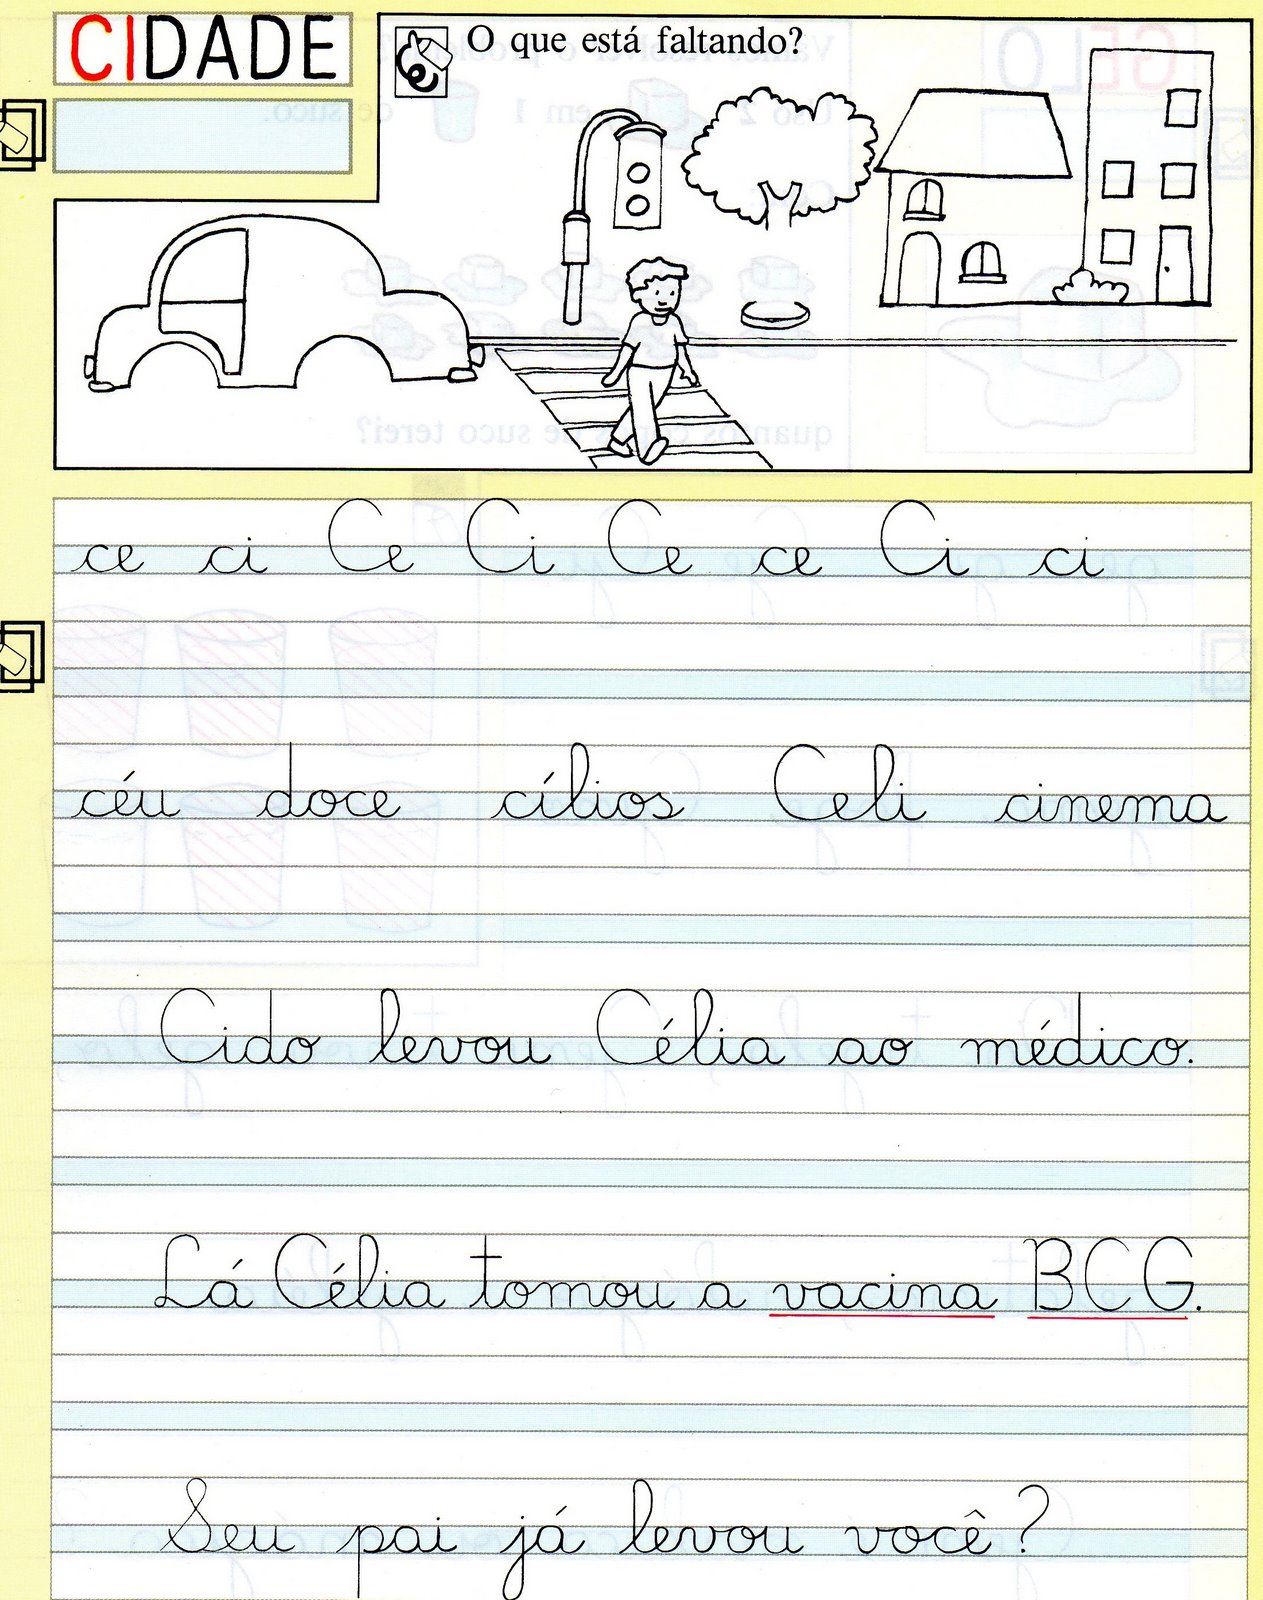 CIDADE
O que está faltando?
ce ci Ce Ci Ce ce Ci ci
céu doce cílios Celi cinema
Cido levou Célia ao médico.
Lá Célia tomou a vacina BCG.
Seu pai já levou você?